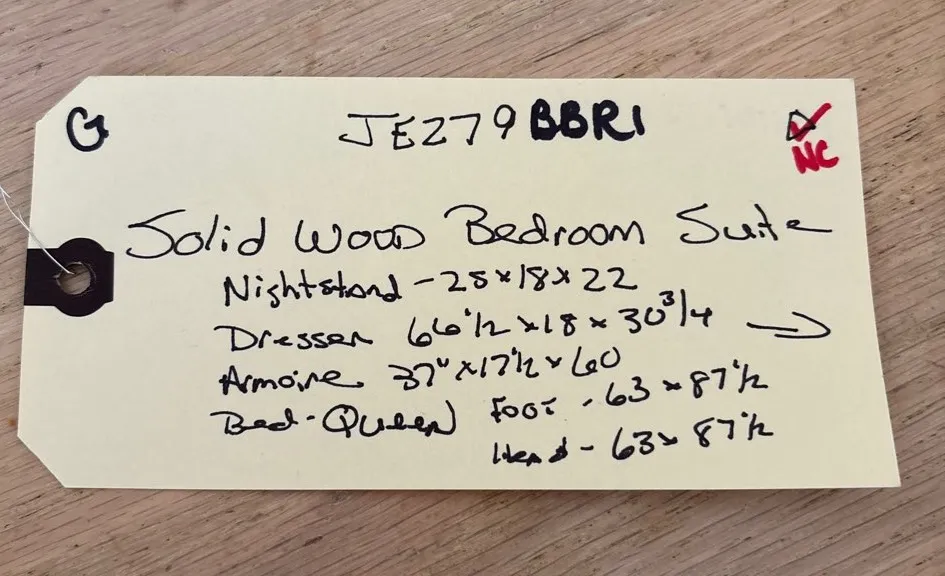 G
JE279BBR1
NC
Solid Wood Bedroom Suite
Nightstand - 28 x 18 x 22
Dresser 66 1/2 x 18 x 30 3/4 →
Armoire 37" x 17 1/2 x 60
Bed - Queen Foot - 63 x 87 1/2
Head - 63 x 87 1/2